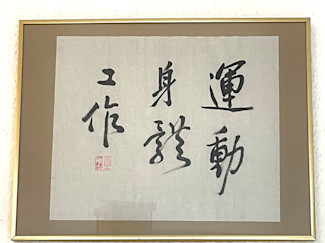 運動
身體
工作